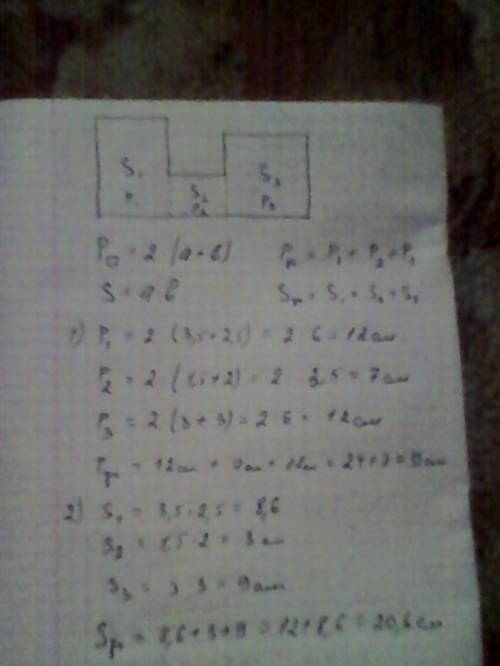 S₁
P₁
S₂
P₂
S₃
P₃
P▭ = 2 (a+b)
Pф = P₁ + P₂ + P₃
S = a b
Sф = S₁ + S₂ + S₃
1) P₁ = 2 (3,5+2,5) = 2 · 6 = 12 см
P₂ = 2 (1,5+2) = 2 3,5 = 7 см
P₃ = 2 (3+3) = 2 6 = 12 см
Pф = 12 см + 7 см + 12 см = 24+7 = 31 см
2) S₁ = 3,5 · 2,5 = 8,6
S₂ = 1,5 · 2 = 3 см
S₃ = 3 3 = 9 см
Sф = 8,6+3+9 = 12+8,6 = 20,6 см